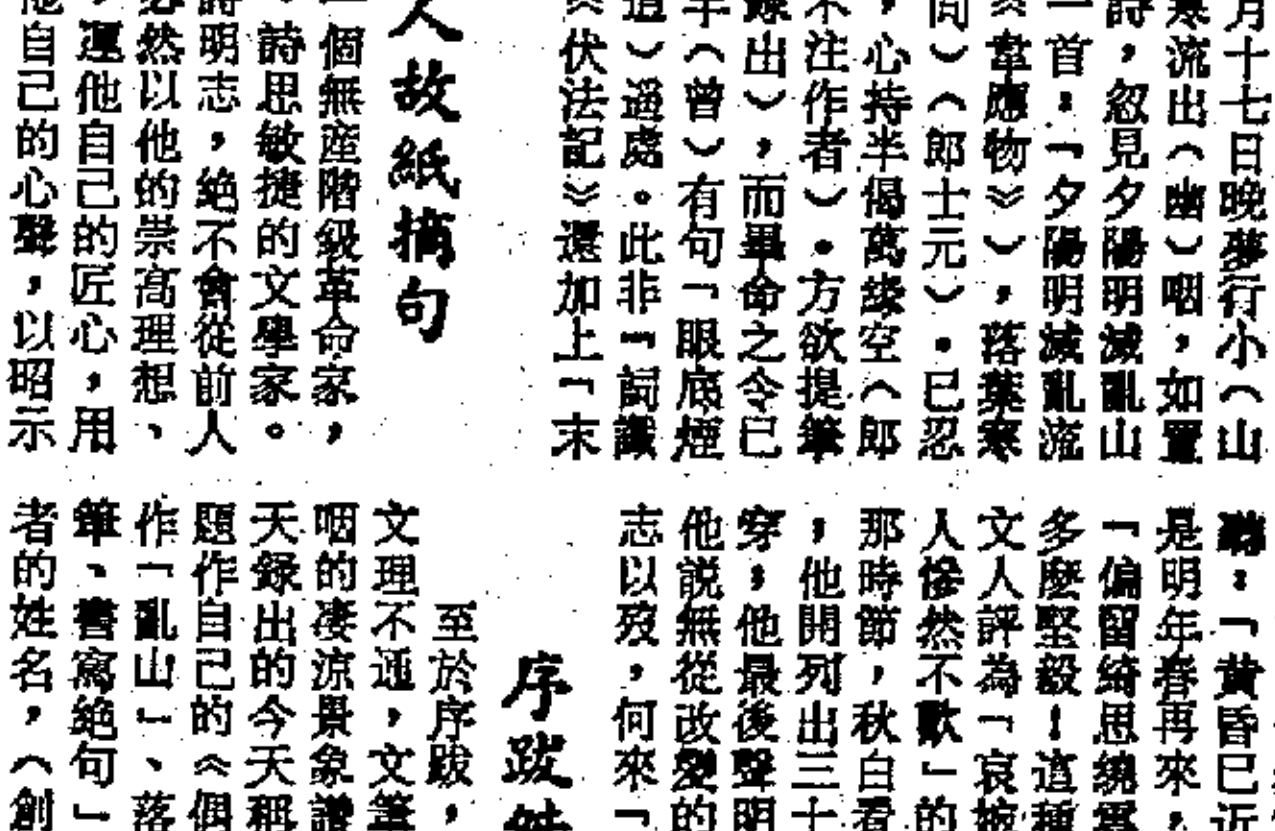 月十七日晚夢行小（山
寒流出（幽）咽，如置
詩，忽見夕陽明滅亂山
一首：「夕陽明滅亂流
《韋應物》），落葉寒
間）（郎士元）。已忍
，心持半偈萬緣空（郎
不注作者）。方欲提筆
錄出），而畢命之令已
半（曾）有句「眼底煙
道）過處。此非「詞讖
《伏法記》還加上「末
人故紙摘句
一個無產階級革命家，
。詩思敏捷的文學家。
詩明志，絶不會從前人
必然以他的崇高理想、
，運他自己的匠心，用
他自己的心聲，以昭示
：「黄昏已近
是明年春再來，
「偏留綺思繞雲
多麼堅毅！這種
文人評為「哀婉
人慘然不歡」的
那時節，秋白看
，他開列出三十
穿，他最後聲明
他説無從改變的
志以歿，何來「
序跋
至於序跋，
文理不通，文筆
咽的凄涼景象
天録出的今天稱
題作自己的《偶
作「亂山」、落
筆、書寫絶句」
者的姓名，（創